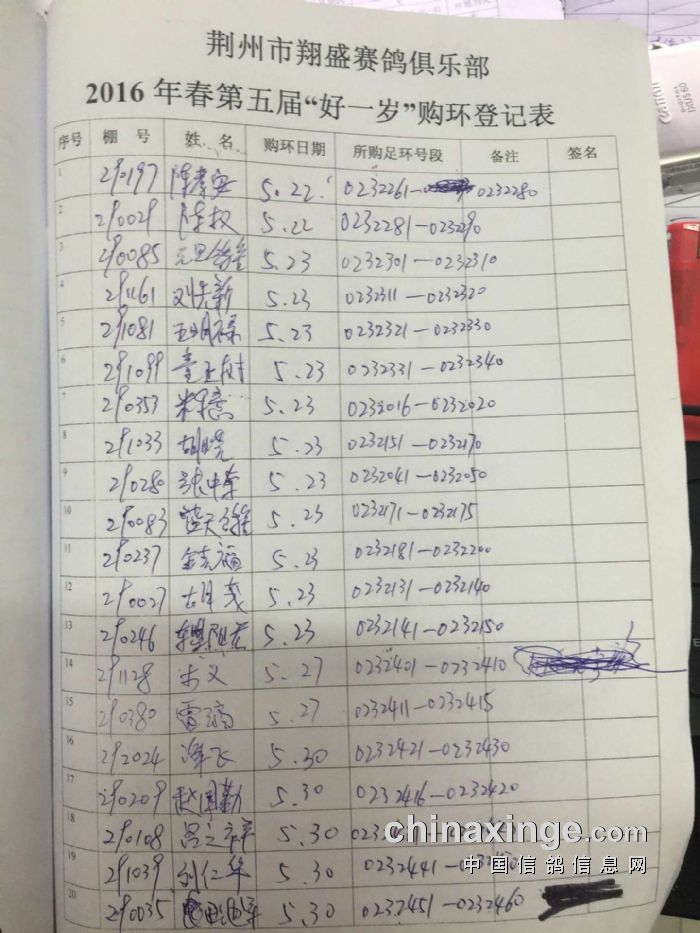 荆州市翔盛赛鸽俱乐部
2016年春第五届“好一岁”购环登记表
序号 棚号 姓名 购环日期 所购足环号段 备注 签名
1 290197 陈孝安 5.22 0232261- 0232280
2 290029 陈权 5.22 0232281-0232290
3 290085 5.23 0232301-0232310
4 291161 刘先新 5.23 0232311-0232320
5 291081 5.23 0232321-0232330
6 291099 5.23 0232331-0232340
7 290353 5.23 0232016-0232020
8 291033 胡晓 5.23 0232151-0232170
9 290280 张中华 5.23 0232041-0232050
10 290083 5.23 0232171-0232175
11 290237 5.23 0232181-0232200
12 290027 胡 5.23 0232131-0232140
13 290246 5.23 0232141-0232150
14 291128 5.27 0232401-0232410
15 290380 雷 5.27 0232411-0232415
16 292024 飞 5.30 0232421-0232430
17 290209 赵国勤 5.30 0232416-0232420
18 290108 5.30
19 291039 刘仁华 5.30 0232441-
20 290035 5.30 0232451-0232460
chinaxinge.com
中国信鸽信息网